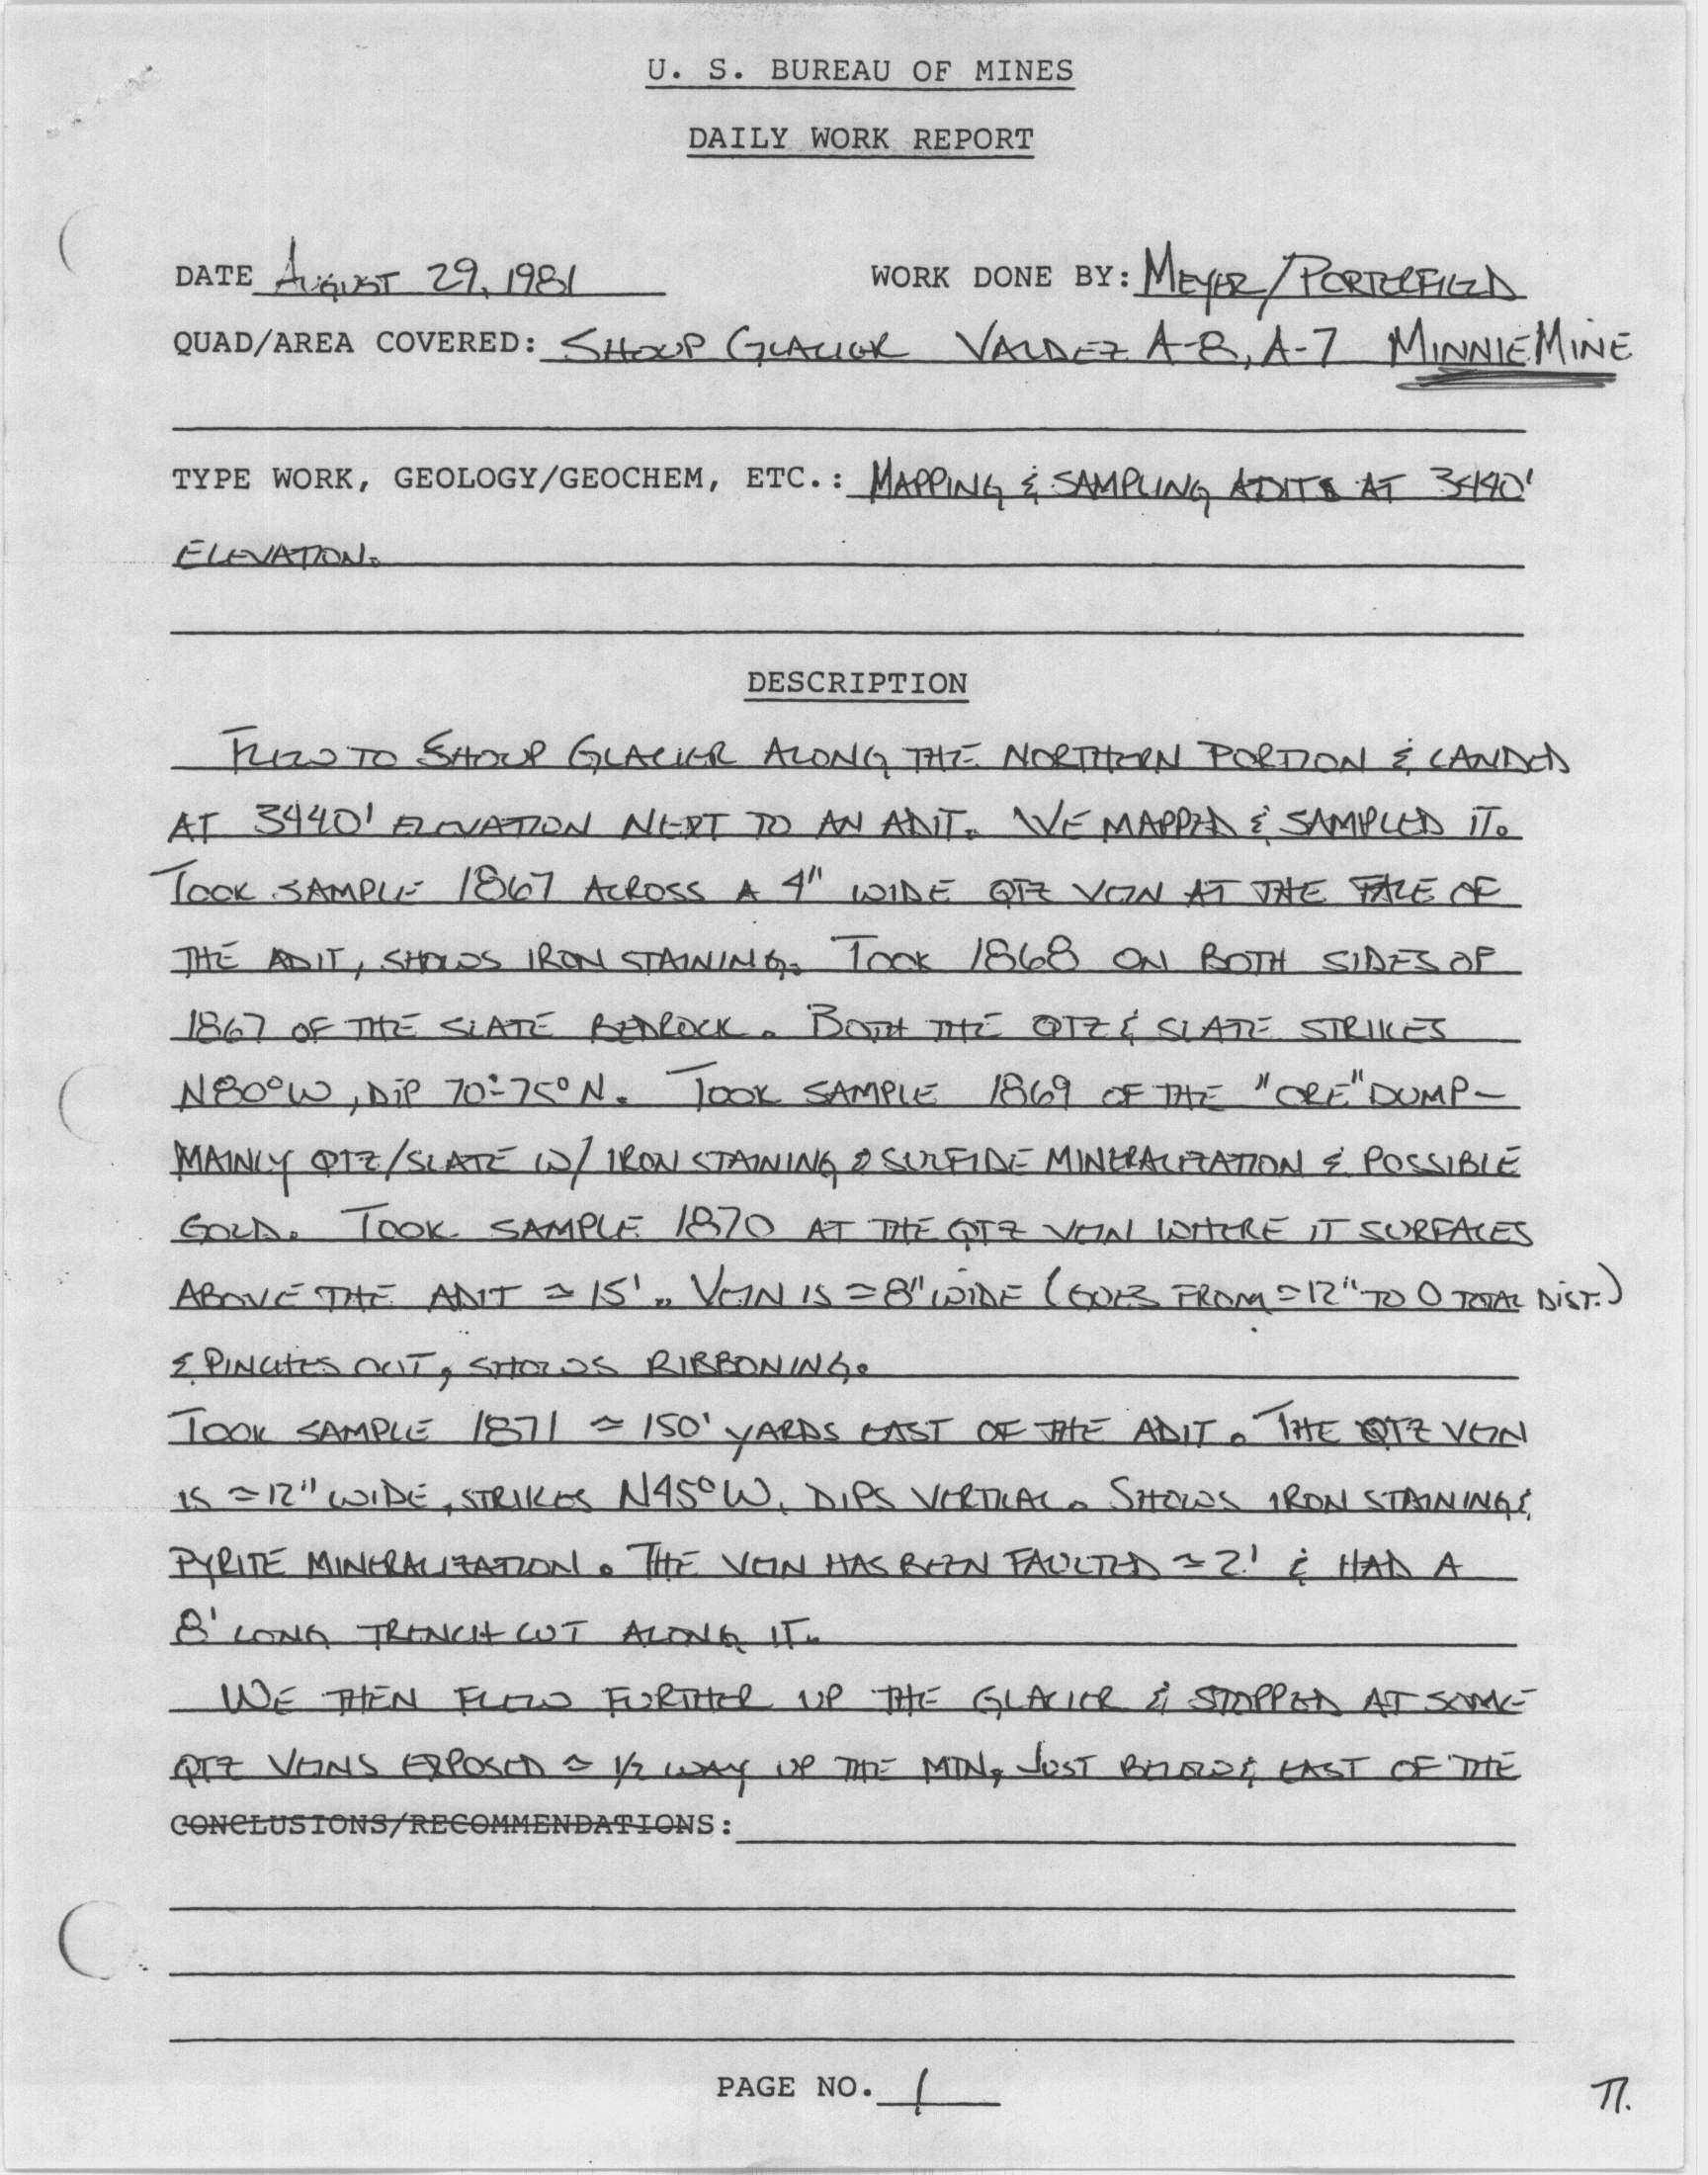 U. S. BUREAU OF MINES
DAILY WORK REPORT
DATE AUGUST 29, 1981 WORK DONE BY: MEYER/PORTERFIELD
QUAD/AREA COVERED: SHOUP GLACIER VALDEZ A-8, A-7 MINNIE MINE
TYPE WORK, GEOLOGY/GEOCHEM, ETC.: MAPPING & SAMPLING ADITS AT 3440'
ELEVATION.
DESCRIPTION
FLEW TO SHOUP GLACIER ALONG THE NORTHERN PORTION & LANDED
AT 3440' ELEVATION NEXT TO AN ADIT. WE MAPPED & SAMPLED IT.
TOOK SAMPLE 1867 ACROSS A 4" WIDE QTZ VEIN AT THE FACE OF
THE ADIT, SHOWS IRON STAINING. TOOK 1868 ON BOTH SIDES OF
1867 OF THE SLATE BEDROCK. BOTH THE QTZ & SLATE STRIKES
N80°W, DIP 70°-75°N. TOOK SAMPLE 1869 OF THE "ORE" DUMP-
MAINLY QTZ/SLATE W/ IRON STAINING & SULFIDE MINERALIZATION & POSSIBLE
GOLD. TOOK SAMPLE 1870 AT THE QTZ VEIN WHERE IT SURFACES
ABOVE THE ADIT ≃ 15'. VEIN IS ≃ 8" WIDE (GOES FROM ≃ 12" TO 0 TOTAL DIST.)
& PINCHES OUT, SHOWS RIBBONING.
TOOK SAMPLE 1871 ≃ 150' YARDS EAST OF THE ADIT. THE QTZ VEIN
IS ≃ 12" WIDE, STRIKES N45°W, DIPS VERTICAL. SHOWS IRON STAINING &
PYRITE MINERALIZATION. THE VEIN HAS BEEN FAULTED ≃ 2' & HAD A
8' LONG TRENCH CUT ALONG IT.
WE THEN FLEW FURTHER UP THE GLACIER & STOPPED AT SOME
QTZ VEINS EXPOSED ≃ 1/2 WAY UP THE MTN, JUST BELOW & EAST OF THE
CONCLUSIONS/RECOMMENDATIONS:
PAGE NO. 1